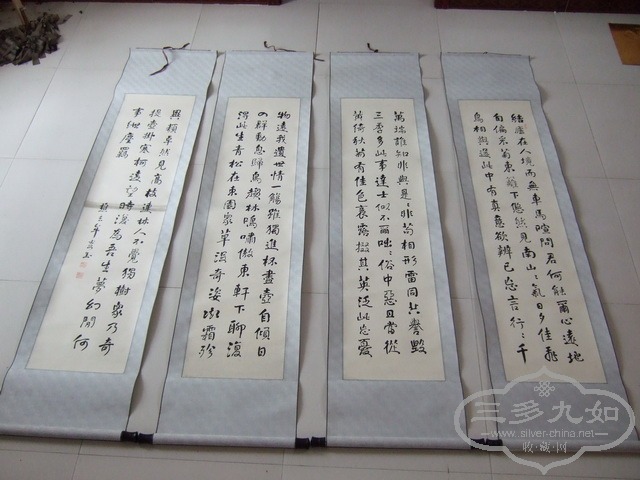 結廬在人境而無車馬喧問君何能爾心遠地
自偏采菊東籬下悠然見南山〻氣日夕佳飛
鳥相與還此中有真意欲辨已忘言行〻千
萬端誰知非與是〻非苟相形雷同共譽毀
三季多此事達士似不爾咄〻俗中惡且當從
黃綺秋菊有佳色裛露掇其英泛此忘憂
物遠我遺世情一觴雖獨進杯盡壺自傾日
入群動息歸鳥趨林鳴嘯傲東軒下聊復
得此生青松在東園眾草沒奇姿凝霜殄
異類卓然見高枝連林人不覺獨樹眾乃奇
提壺掛寒柯遠望時復為吾生夢幻間何
事紲塵羈
三多九如
www.silver-china.net
收藏网